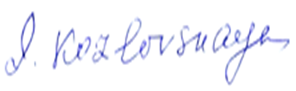 I. Kozlovskaya